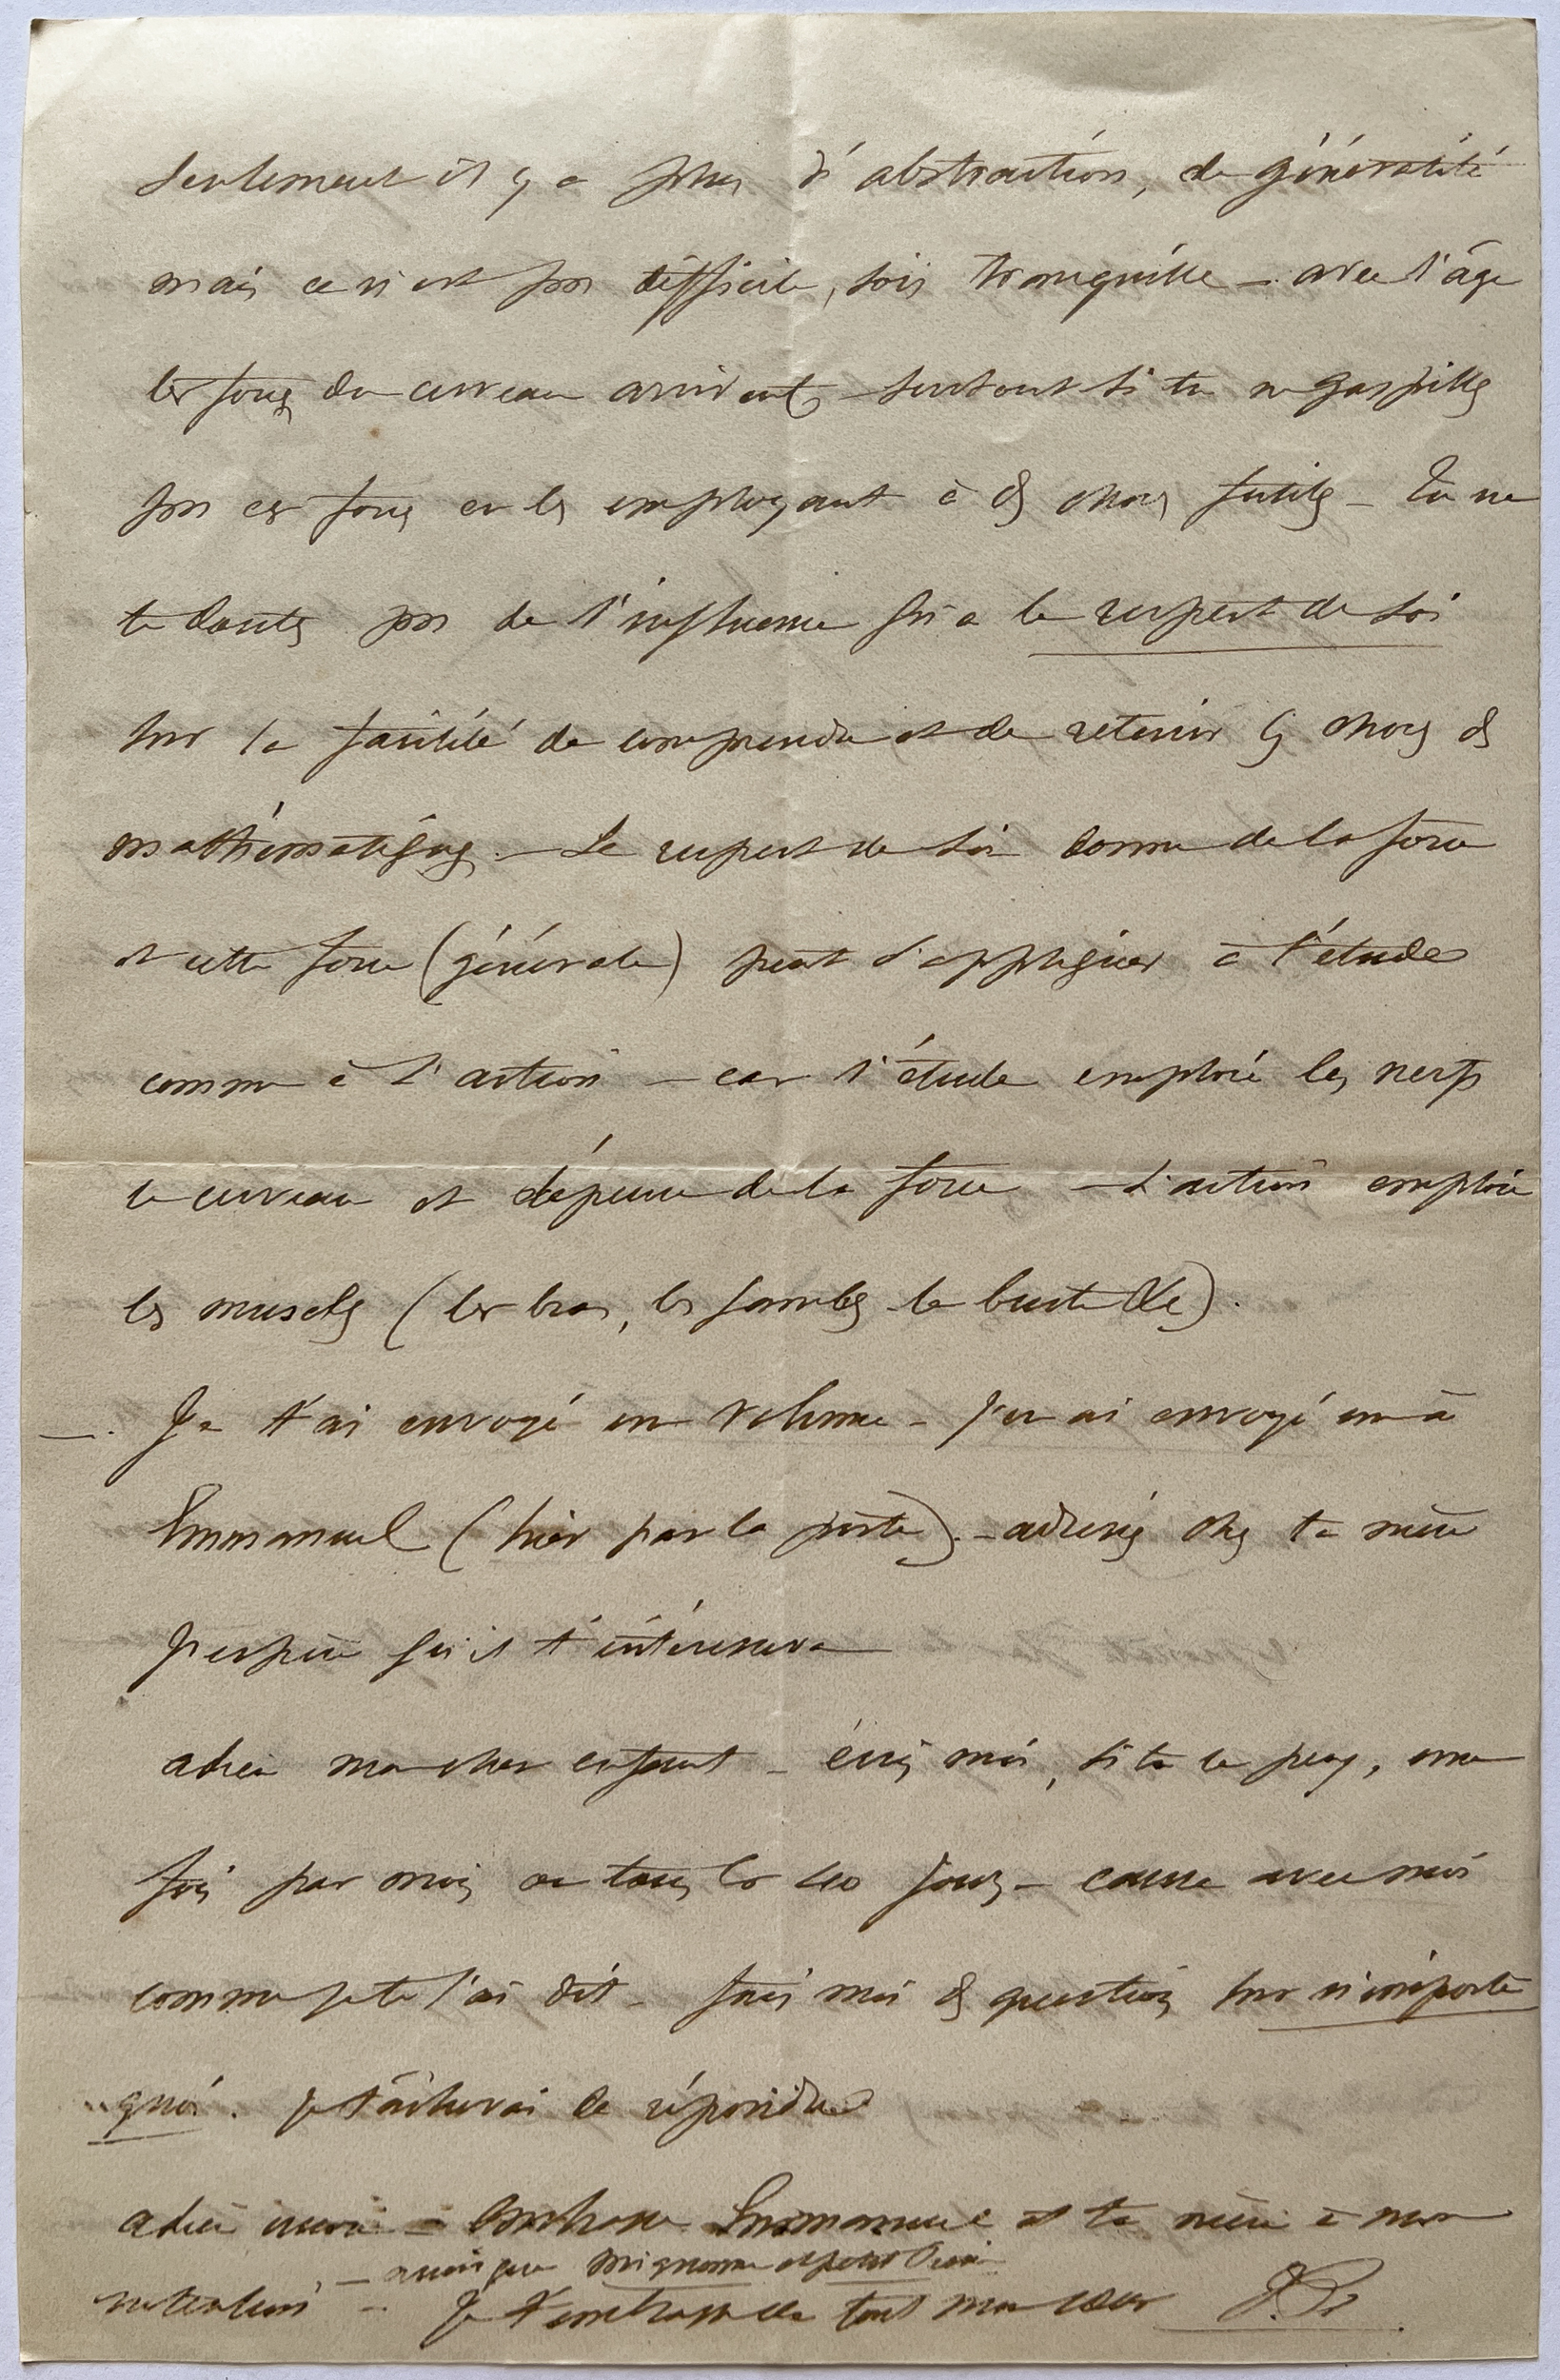 Seulement il y a plus d'abstraction, de généralité
mais ce n'est pas difficile, sois tranquille - avec l'âge
les forces du cerveau arrivent, surtout si tu ne gaspilles
pas ces forces en les employant à des choses futiles - Tu ne
te doutes pas de l'influence qu'a le respect de soi
sur la facilité de comprendre et de retenir les choses des
mathématiques. - Le respect de soi donne de la force
et cette force (générale) peut s'appliquer à l'étude
comme à l'action - car l'étude emploie les nerfs
le cerveau et dépense de la force - L'action emploie
les muscles (les bras, les jambes le buste &c).
- Je t'ai envoyé un volume - j'en ai envoyé un à
Emmanuel (hier par la poste) - adressé chez ta mère
j'espère qu'il t'intéressera
adieu mon cher enfant - écris moi, si tu le peux, une
fois par mois ou tous les 40 jours - cause avec moi
comme je te l'ai dit - fais moi des questions sur n'importe
quoi. je tâcherai de répondre
adieu encore - embrasse Emmanuel et ta mère à mon
- ainsi que mignonne et petit
intention - Je t'embrasse de tout mon cœur